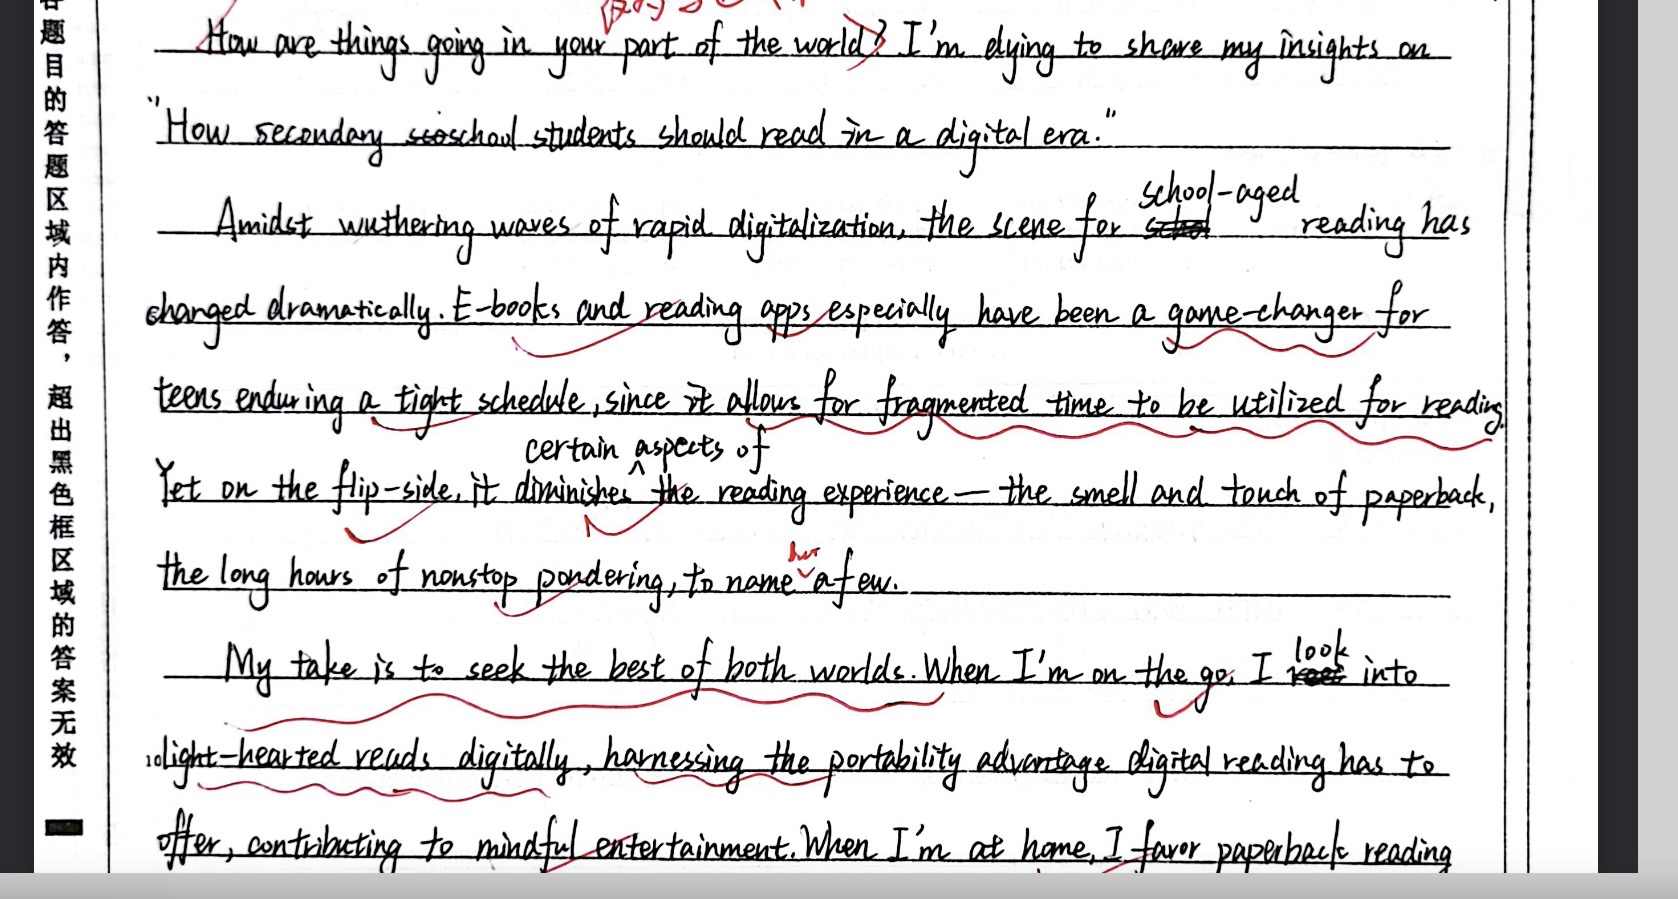 答题目的答题区域内作答，超出黑色框区域的答案无效
How are things going in your part of the world? I'm dying to share my insights on
"How secondary school students should read in a digital era."
school-aged
Amidst wuthering waves of rapid digitalization, the scene for reading has
changed dramatically. E-books and reading apps especially have been a game-changer for
teens enduring a tight schedule, since it allows for fragmented time to be utilized for reading.
certain aspects of
Yet on the flip-side, it diminishes the reading experience — the smell and touch of paperback,
but
the long hours of nonstop pondering, to name a few.
look
My take is to seek the best of both worlds. When I'm on the go, I into
10
light-hearted reads digitally, harnessing the portability advantage digital reading has to
offer, contributing to mindful entertainment. When I'm at home, I favor paperback reading